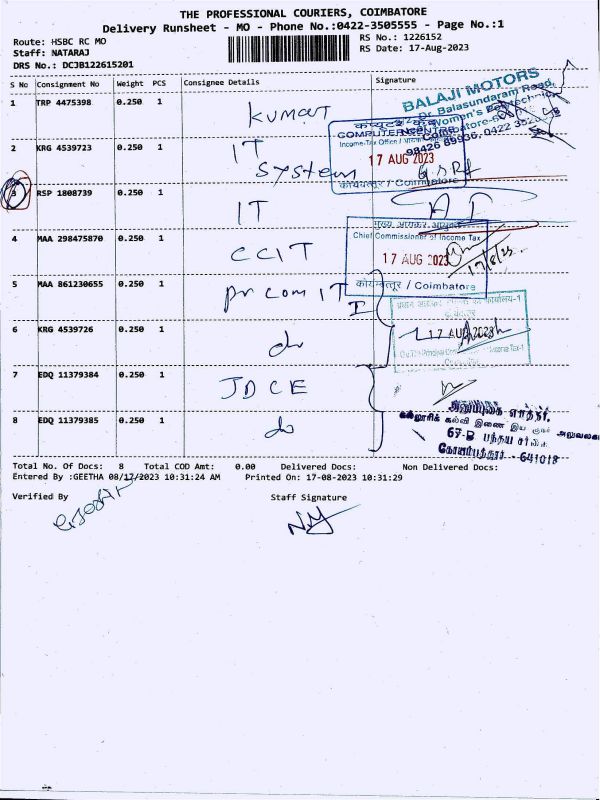 THE PROFESSIONAL COURIERS, COIMBATORE
Delivery Runsheet - MO - Phone No.:0422-3505555 - Page No.:1
Route: HSBC RC MO
RS No.: 1226152
Staff: NATARAJ
RS Date: 17-Aug-2023
DRS No.: DCJB122615201
S No Consignment No Weight PCS Consignee Details Signature
1 TRP 4475398 0.250 1 Kumar
BALAJI MOTORS
Dr. Balasundaram Road,
Women's Polytechnic
2 KRG 4539723 0.250 1 IT
System
COMPUTER CENTRE
Income-Tax Office
98426 89936, 0422
17 AUG 2023
कोयम्बत्तूर / Coimbatore
3 RSP 1808739 0.250 1 IT
4 MAA 298475870 0.250 1 CCIT
मुख्य आयकर आयुक्त
Chief Commissioner of Income Tax
17 AUG 2023
17/8/23
कोयम्बत्तूर / Coimbatore
5 MAA 861230655 0.250 1 Pr Com IT I
6 KRG 4539726 0.250 1 do
17 AUG 2023
7 EDQ 11379384 0.250 1 JDCE
8 EDQ 11379385 0.250 1 do
கல்லூரிக் கல்வி இணை இயக்குநர் அலுவலகம்
67-B பந்தய சாலை
கோயம்புத்தூர் - 641018
Total No. Of Docs: 8 Total COD Amt: 0.00 Delivered Docs: Non Delivered Docs:
Entered By :GEETHA 08/17/2023 10:31:24 AM Printed On: 17-08-2023 10:31:29
Verified By Staff Signature